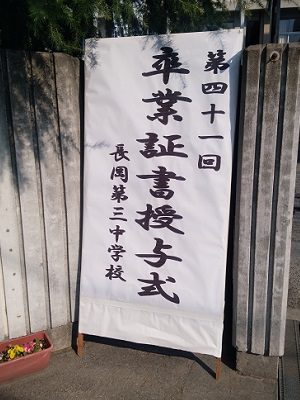 第四十一回
卒業証書授与式
長岡第三中学校